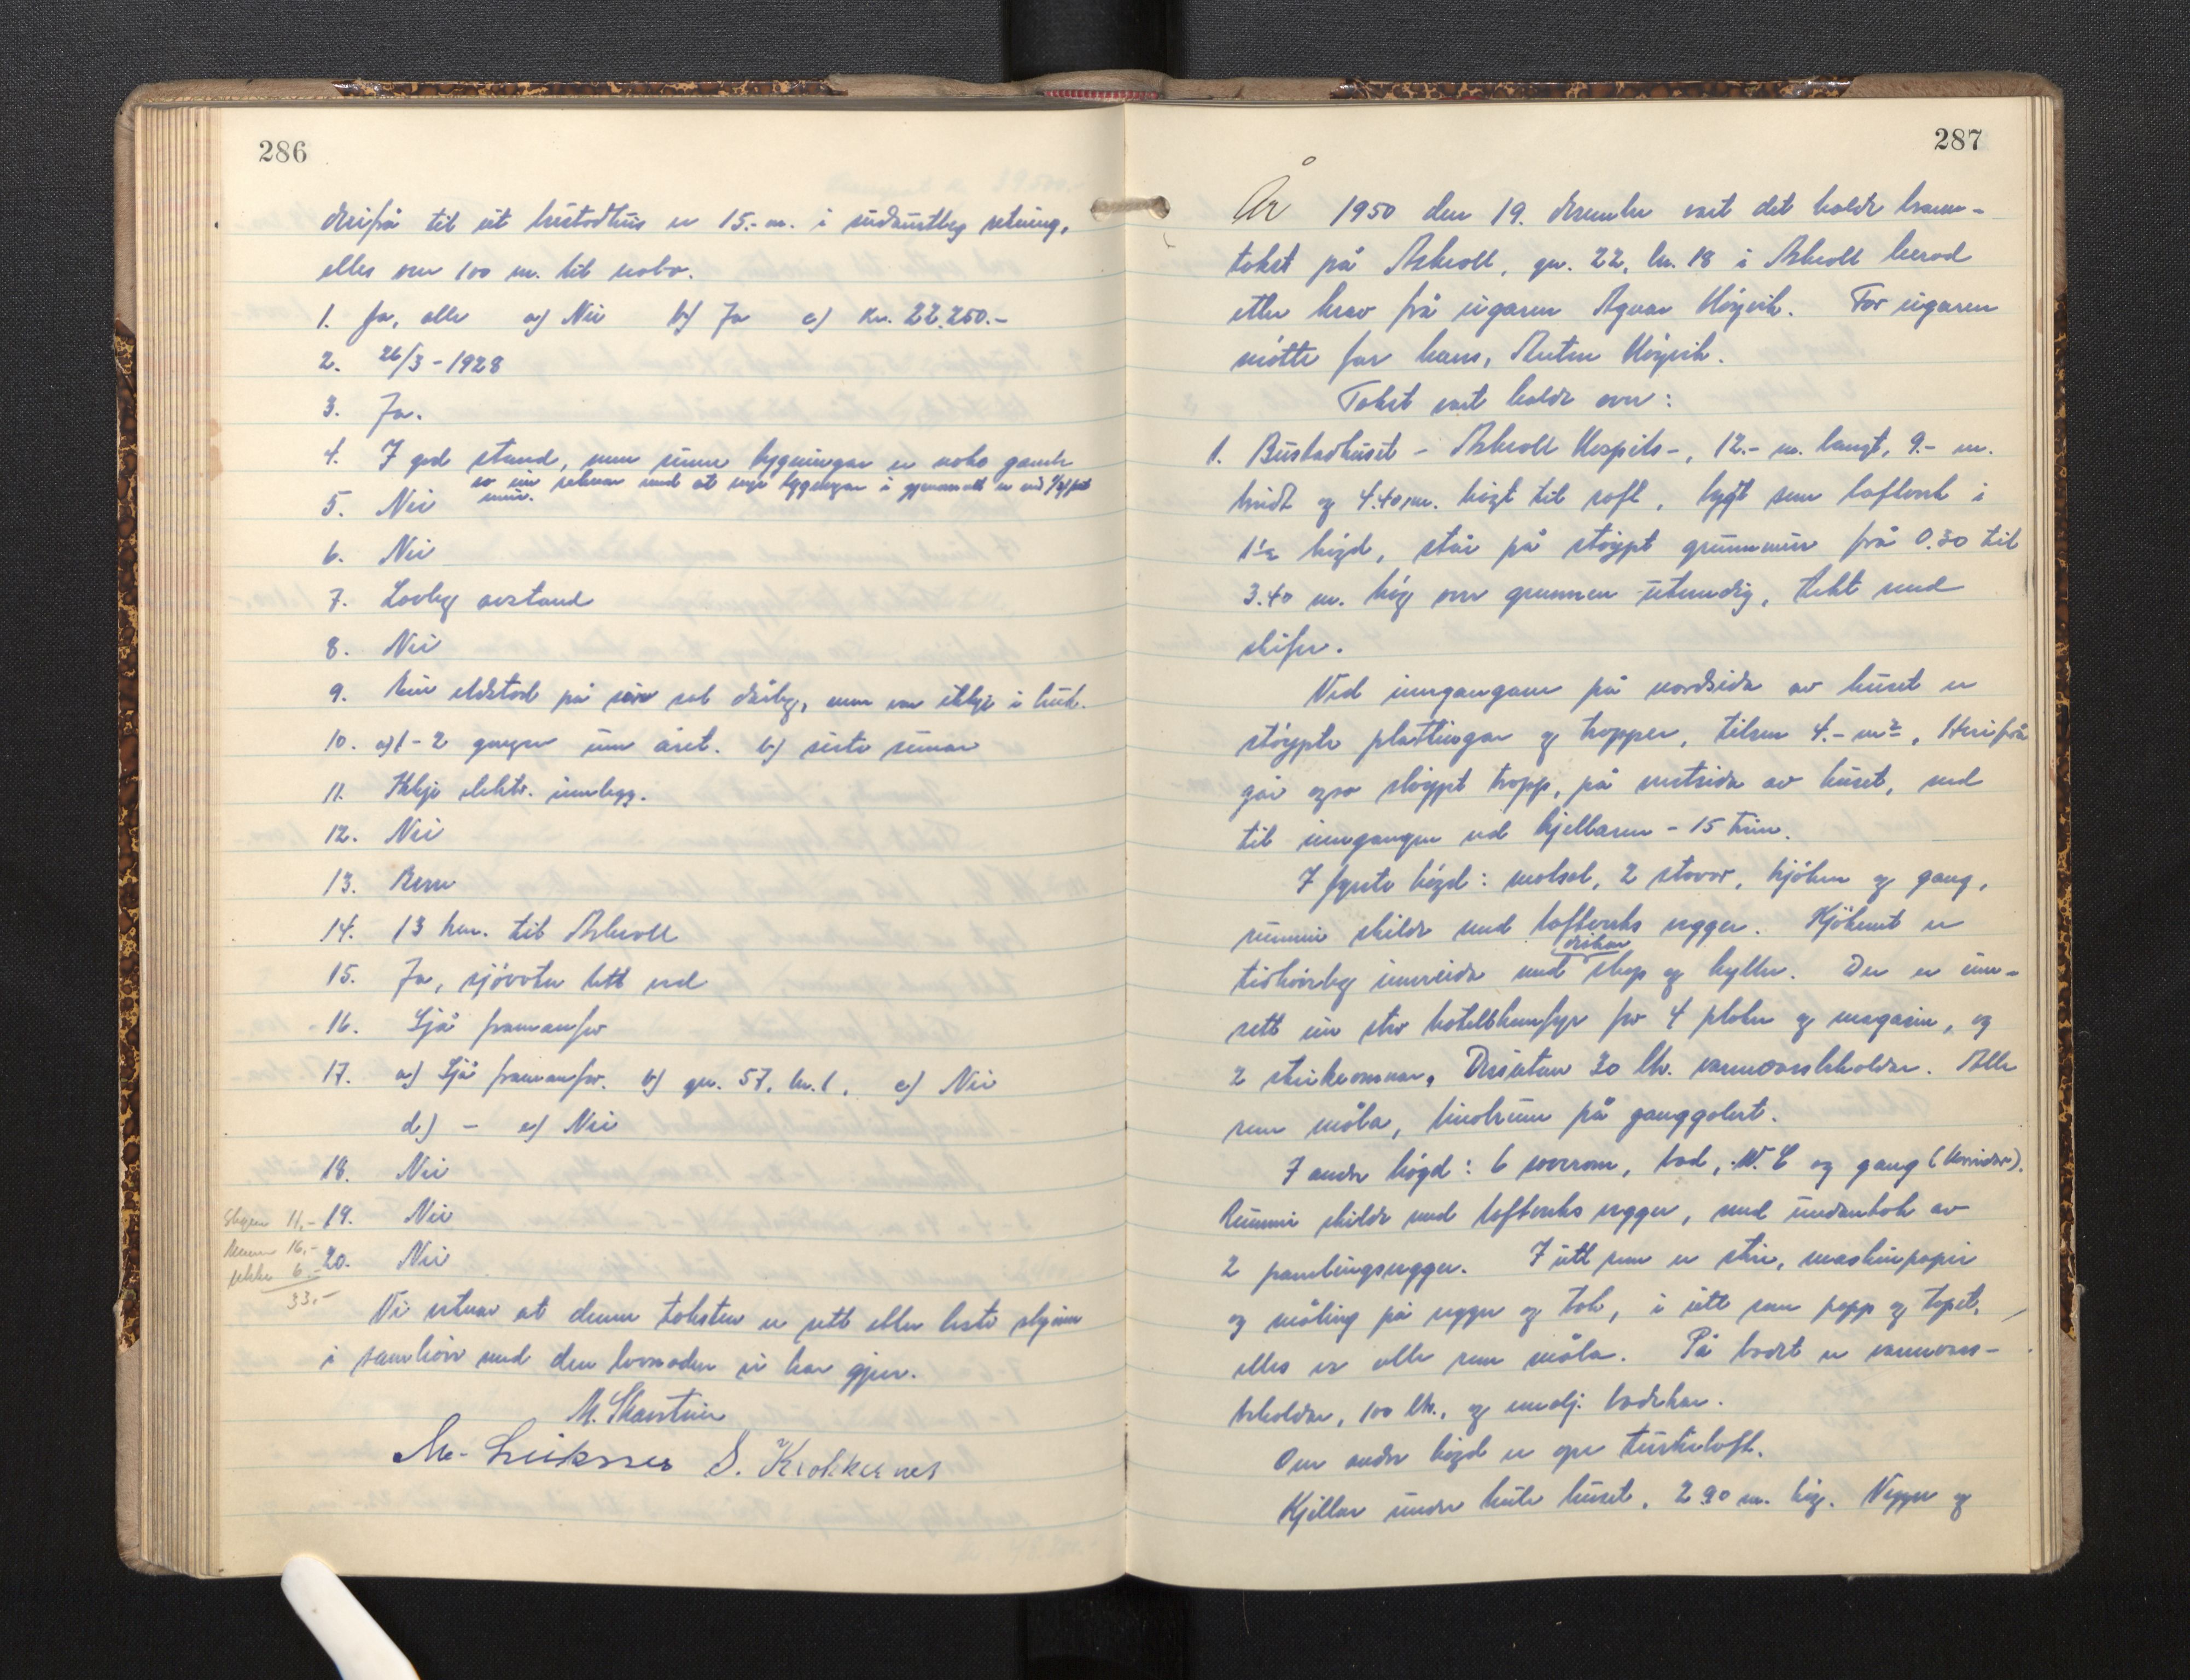 286
derifrå til eit bustadhus er 15.- m. i sudaustleg retning,
elles over 100 m. til nabo.
1. Ja, alle a) Nei b) Ja c) Kr. 22.250.-
2. 26/3 - 1928
3. Ja.
4. I god stand, men sume bygningar er noko gamle
so ein reknar med at nye bygningar i
5. Nei
6. Nei
7. Lovleg avstand
8. Nei
9. Ein eldstad på sers dårleg, men var ikkje i bruk.
10. a) 1-2 gonger um året. b) siste sumar
11. Ikkje elektr. innlegg.
12. Nei
13. Bern
14. 13 km. til Askvoll
15. Ja, sjövatn tett ved
16. Sjå framanfor
17. a) Sjå framanfor. b) gn. 57, bn. 1. c) Nei
d) - e) Nei
18. Nei
19. Nei
20. Nei
Skyss 11.-
16.-
6.-
33.-
Vi vitnar at denne taksten er sett etter beste skjönn
i samhøve med den lovnaden vi har gjeve.
M. Skarstein
M. Leiksnes S. Krokkenes
287
År 1950 den 19. desember vart det halde brann-
takst på Askvoll, gn. 22, bn. 18 i Askvoll herad
etter krav frå eigaren Agnar Høyvik. For eigaren
møtte far hans, Anton Høyvik.
Takst vart halde over:
1. Bustadhuset - Askvoll Hospits -, 12.- m. langt, 9.- m.
breidt og 4.40 m. høgt til roft, bygt som lafteverk i
1½ høgd, står på støypt grunnmur frå 0.50 til
3.40 m. høg over grunnen utvendig, tekt med
skifer.
Ved inngangane på nordsida av huset er
støypte plattingar og tropper, tilsam 4.- m², Herifrå
går ogso støypt tropp, på vestsida av huset, ned
til inngangen ved kjellaren - 15 trin.
I fyrste høgd: matsal, 2 stover, kjøken og gang,
rommi skilde med lafteverks vegger. Kjøkenet er
tidhøveleg innreida med diskar skap og hyller. Der er inn-
sett ein stor hotellkomfyr for 4 plater og magasin, og
2 steikeomnar, Dessutan 30 ltr. varmvassbeholdar. Alle
rom måla, linoleum på ganggolvet.
I andre høgd: 6 soverom, bad, W. C og gang (korridor).
Rommi skilde med lafteverks vegger, med undantak av
2 panelingsvegger. I eitt rom er strie, maskinpapir
og måling på vegger og tak, i eitt rom papp og tapet,
elles er alle rom måla. På badet er varmvass-
beholdar, 100 ltr., og emalj. badekar.
Over andre høgd er ope turkeloft.
Kjellar under heile huset, 2.90 m. høg. Vegger og